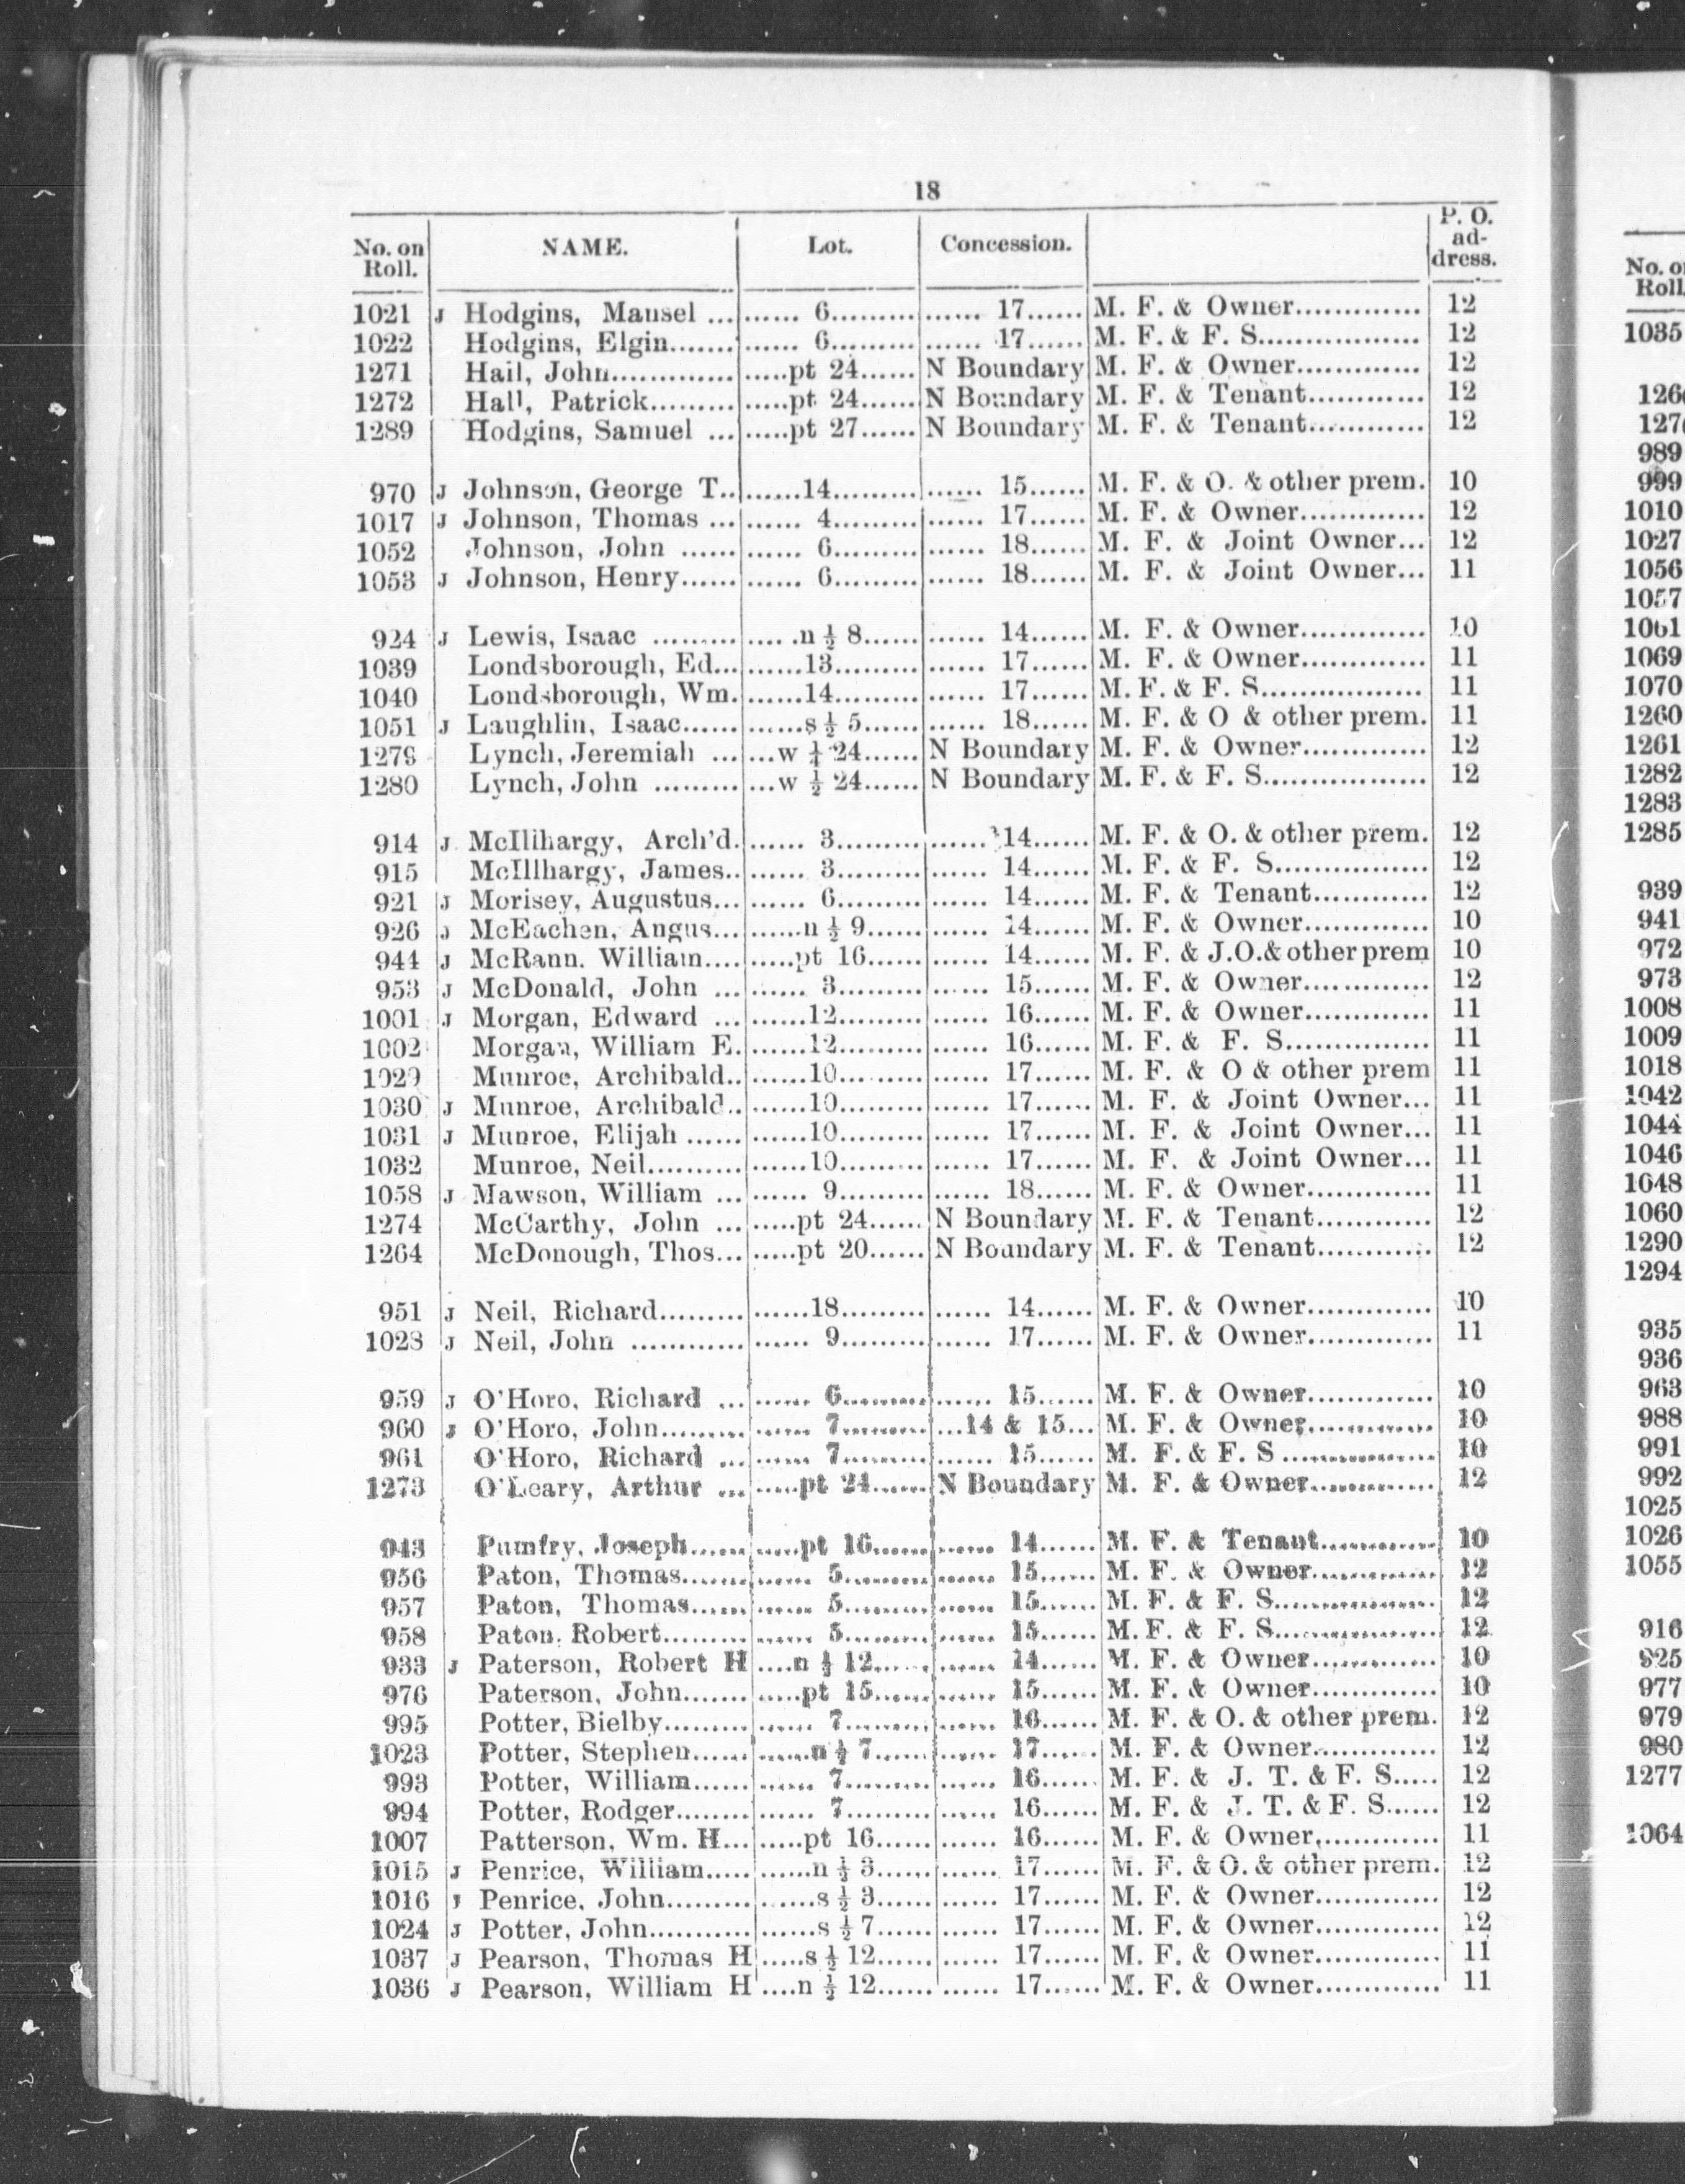 18
No. on Roll. NAME. Lot. Concession. P. O. ad-dress.
1021 J Hodgins, Mansel ... ...... 6......... ...... 17...... M. F. & Owner............. 12
1022 Hodgins, Elgin....... ...... 6......... ...... 17...... M. F. & F. S................. 12
1271 Hail, John............. .....pt 24...... N Boundary M. F. & Owner............. 12
1272 Hall, Patrick......... .....pt 24...... N Boundary M. F. & Tenant............ 12
1289 Hodgins, Samuel ... .....pt 27...... N Boundary M. F. & Tenant............ 12
970 J Johnson, George T.. ......14......... ...... 15...... M. F. & O. & other prem. 10
1017 J Johnson, Thomas ... ...... 4......... ...... 17...... M. F. & Owner............. 12
1052 Johnson, John ...... ...... 6......... ...... 18...... M. F. & Joint Owner... 12
1053 J Johnson, Henry...... ...... 6......... ...... 18...... M. F. & Joint Owner... 11
924 J Lewis, Isaac ......... ..... .n ½ 8...... ...... 14...... M. F. & Owner............. 10
1039 Londsborough, Ed... ......13......... ...... 17...... M. F. & Owner............. 11
1040 Londsborough, Wm. ......14......... ...... 17...... M. F. & F. S................. 11
1051 J Laughlin, Isaac...... ......s ½ 5...... ...... 18...... M. F. & O & other prem. 11
1279 Lynch, Jeremiah ... ...w ½ 24...... N Boundary M. F. & Owner............. 12
1280 Lynch, John ......... ...w ½ 24...... N Boundary M. F. & F. S................. 12
914 J McIllhargy, Arch'd. ...... 3......... ...... 14...... M. F. & O. & other prem. 12
915 McIllhargy, James.. ...... 3......... ...... 14...... M. F. & F. S................ 12
921 J Morisey, Augustus... ...... 6......... ...... 14...... M. F. & Tenant............ 12
926 J McEachen, Angus... ......n ½ 9...... ...... 14...... M. F. & Owner............. 10
944 J McRann. William.... .....pt 16...... ...... 14...... M. F. & J.O.& other prem 10
953 J McDonald, John ... ...... 3......... ...... 15...... M. F. & Owner............. 12
1001 J Morgan, Edward ... ......12......... ...... 16...... M. F. & Owner............. 11
1002 Morgan, William E. ......12......... ...... 16...... M. F. & F. S............... 11
1029 Munroe, Archibald.. ......10......... ...... 17...... M. F. & O & other prem 11
1030 J Munroe, Archibald.. ......10......... ...... 17...... M. F. & Joint Owner... 11
1031 J Munroe, Elijah ...... ......10......... ...... 17...... M. F. & Joint Owner... 11
1032 Munroe, Neil.......... ......10......... ...... 17...... M. F. & Joint Owner... 11
1058 J Mawson, William ... ...... 9......... ...... 18...... M. F. & Owner............. 11
1274 McCarthy, John ... .....pt 24...... N Boundary M. F. & Tenant............ 12
1264 McDonough, Thos... .....pt 20...... N Boundary M. F. & Tenant............ 12
951 J Neil, Richard......... ......18......... ...... 14...... M. F. & Owner............. 10
1028 J Neil, John ............ ...... 9......... ...... 17...... M. F. & Owner............. 11
959 J O'Horo, Richard ... ...... 6......... ...... 15...... M. F. & Owner............. 10
960 J O'Horo, John......... ...... 7......... ...14 & 15... M. F. & Owner............. 10
961 O'Horo, Richard ... ...... 7......... ...... 15...... M. F. & F. S ................ 10
1273 O'Leary, Arthur ... .....pt 24...... N Boundary M. F. & Owner............. 12
943 Pumfry, Joseph...... .....pt 16...... ...... 14...... M. F. & Tenant............ 10
956 Paton, Thomas....... ...... 5......... ...... 15...... M. F. & Owner............. 12
957 Paton, Thomas...... ...... 5......... ...... 15...... M. F. & F. S................. 12
958 Paton, Robert......... ...... 5......... ...... 15...... M. F. & F. S................. 12
933 J Paterson, Robert H ....n ½ 12...... ...... 14...... M. F. & Owner............. 10
976 Paterson, John....... .....pt 15...... ...... 15...... M. F. & Owner............. 10
995 Potter, Bielby......... ...... 7......... ...... 16...... M. F. & O. & other prem. 12
1023 Potter, Stephen...... ......n ½ 7...... ...... 17...... M. F. & Owner............. 12
993 Potter, William...... ...... 7......... ...... 16...... M. F. & J. T. & F. S..... 12
994 Potter, Rodger........ ...... 7......... ...... 16...... M. F. & J. T. & F. S...... 12
1007 Patterson, Wm. H... .....pt 16...... ...... 16...... M. F. & Owner............. 11
1015 J Penrice, William..... ......n ½ 3...... ...... 17...... M. F. & O. & other prem. 12
1016 J Penrice, John......... ......s ½ 3...... ...... 17...... M. F. & Owner............. 12
1024 J Potter, John........... ......s ½ 7...... ...... 17...... M. F. & Owner............. 12
1037 J Pearson, Thomas H .....s ½ 12...... ...... 17...... M. F. & Owner............. 11
1036 J Pearson, William H ....n ½ 12...... ...... 17...... M. F. & Owner............. 11
No. on
Roll.
1035
989
999
1010
1027
1056
1057
1061
1069
1070
1260
1261
1282
1283
1285
939
941
972
973
1008
1009
1018
1042
1044
1046
1648
1060
1290
1294
935
936
963
988
991
992
1025
1026
1055
916
925
977
979
980
1277
1064